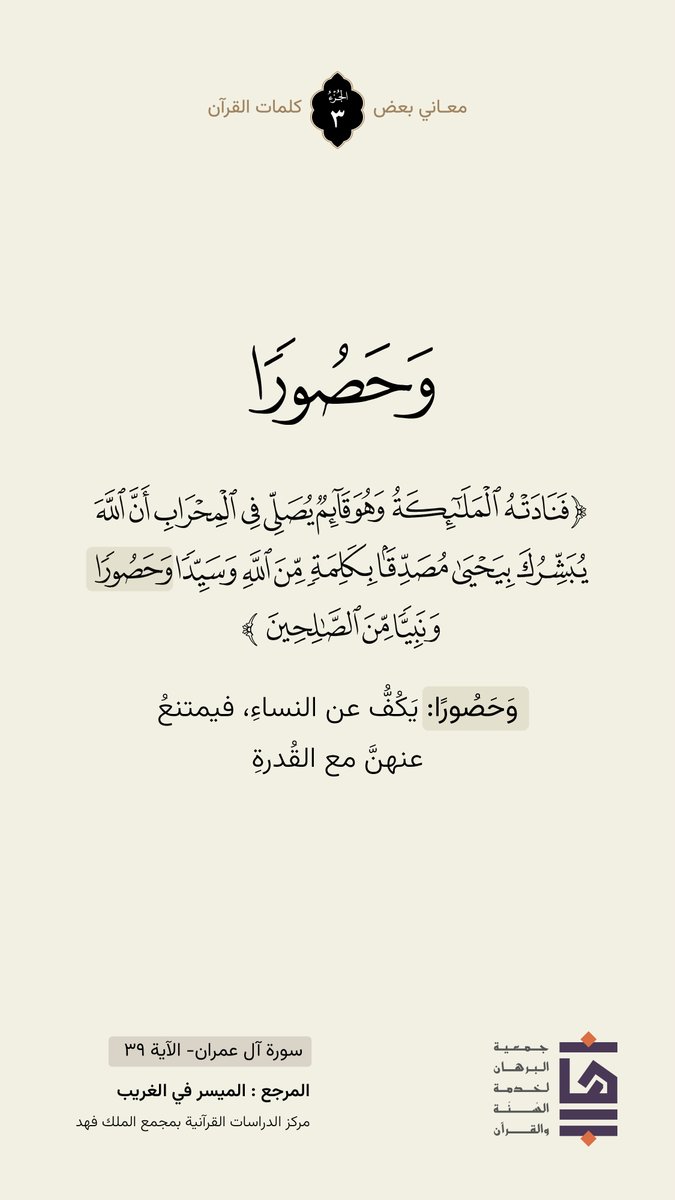 معـاني بعض الجُزْءُ ٣ كلمات القرآن
وَحَصُورًا
﴿فَنَادَتْهُ ٱلْمَلَـٰٓئِكَةُ وَهُوَ قَآئِمٌ يُصَلِّى فِى ٱلْمِحْرَابِ أَنَّ ٱللَّهَ
يُبَشِّرُكَ بِيَحْيَىٰ مُصَدِّقًۢا بِكَلِمَةٍ مِّنَ ٱللَّهِ وَسَيِّدًا وَحَصُورًا
وَنَبِيًّا مِّنَ ٱلصَّـٰلِحِينَ ﴾
وَحَصُورًا: يَكُفُّ عن النساءِ، فيمتنعُ
عنهنَّ مع القُدرةِ
سورة آل عمران- الآية ٣٩
المرجع : الميسر في الغريب
مركز الدراسات القرآنية بمجمع الملك فهد
جمعية
البرهان
لخدمة
السُّنَّة
والقرآن